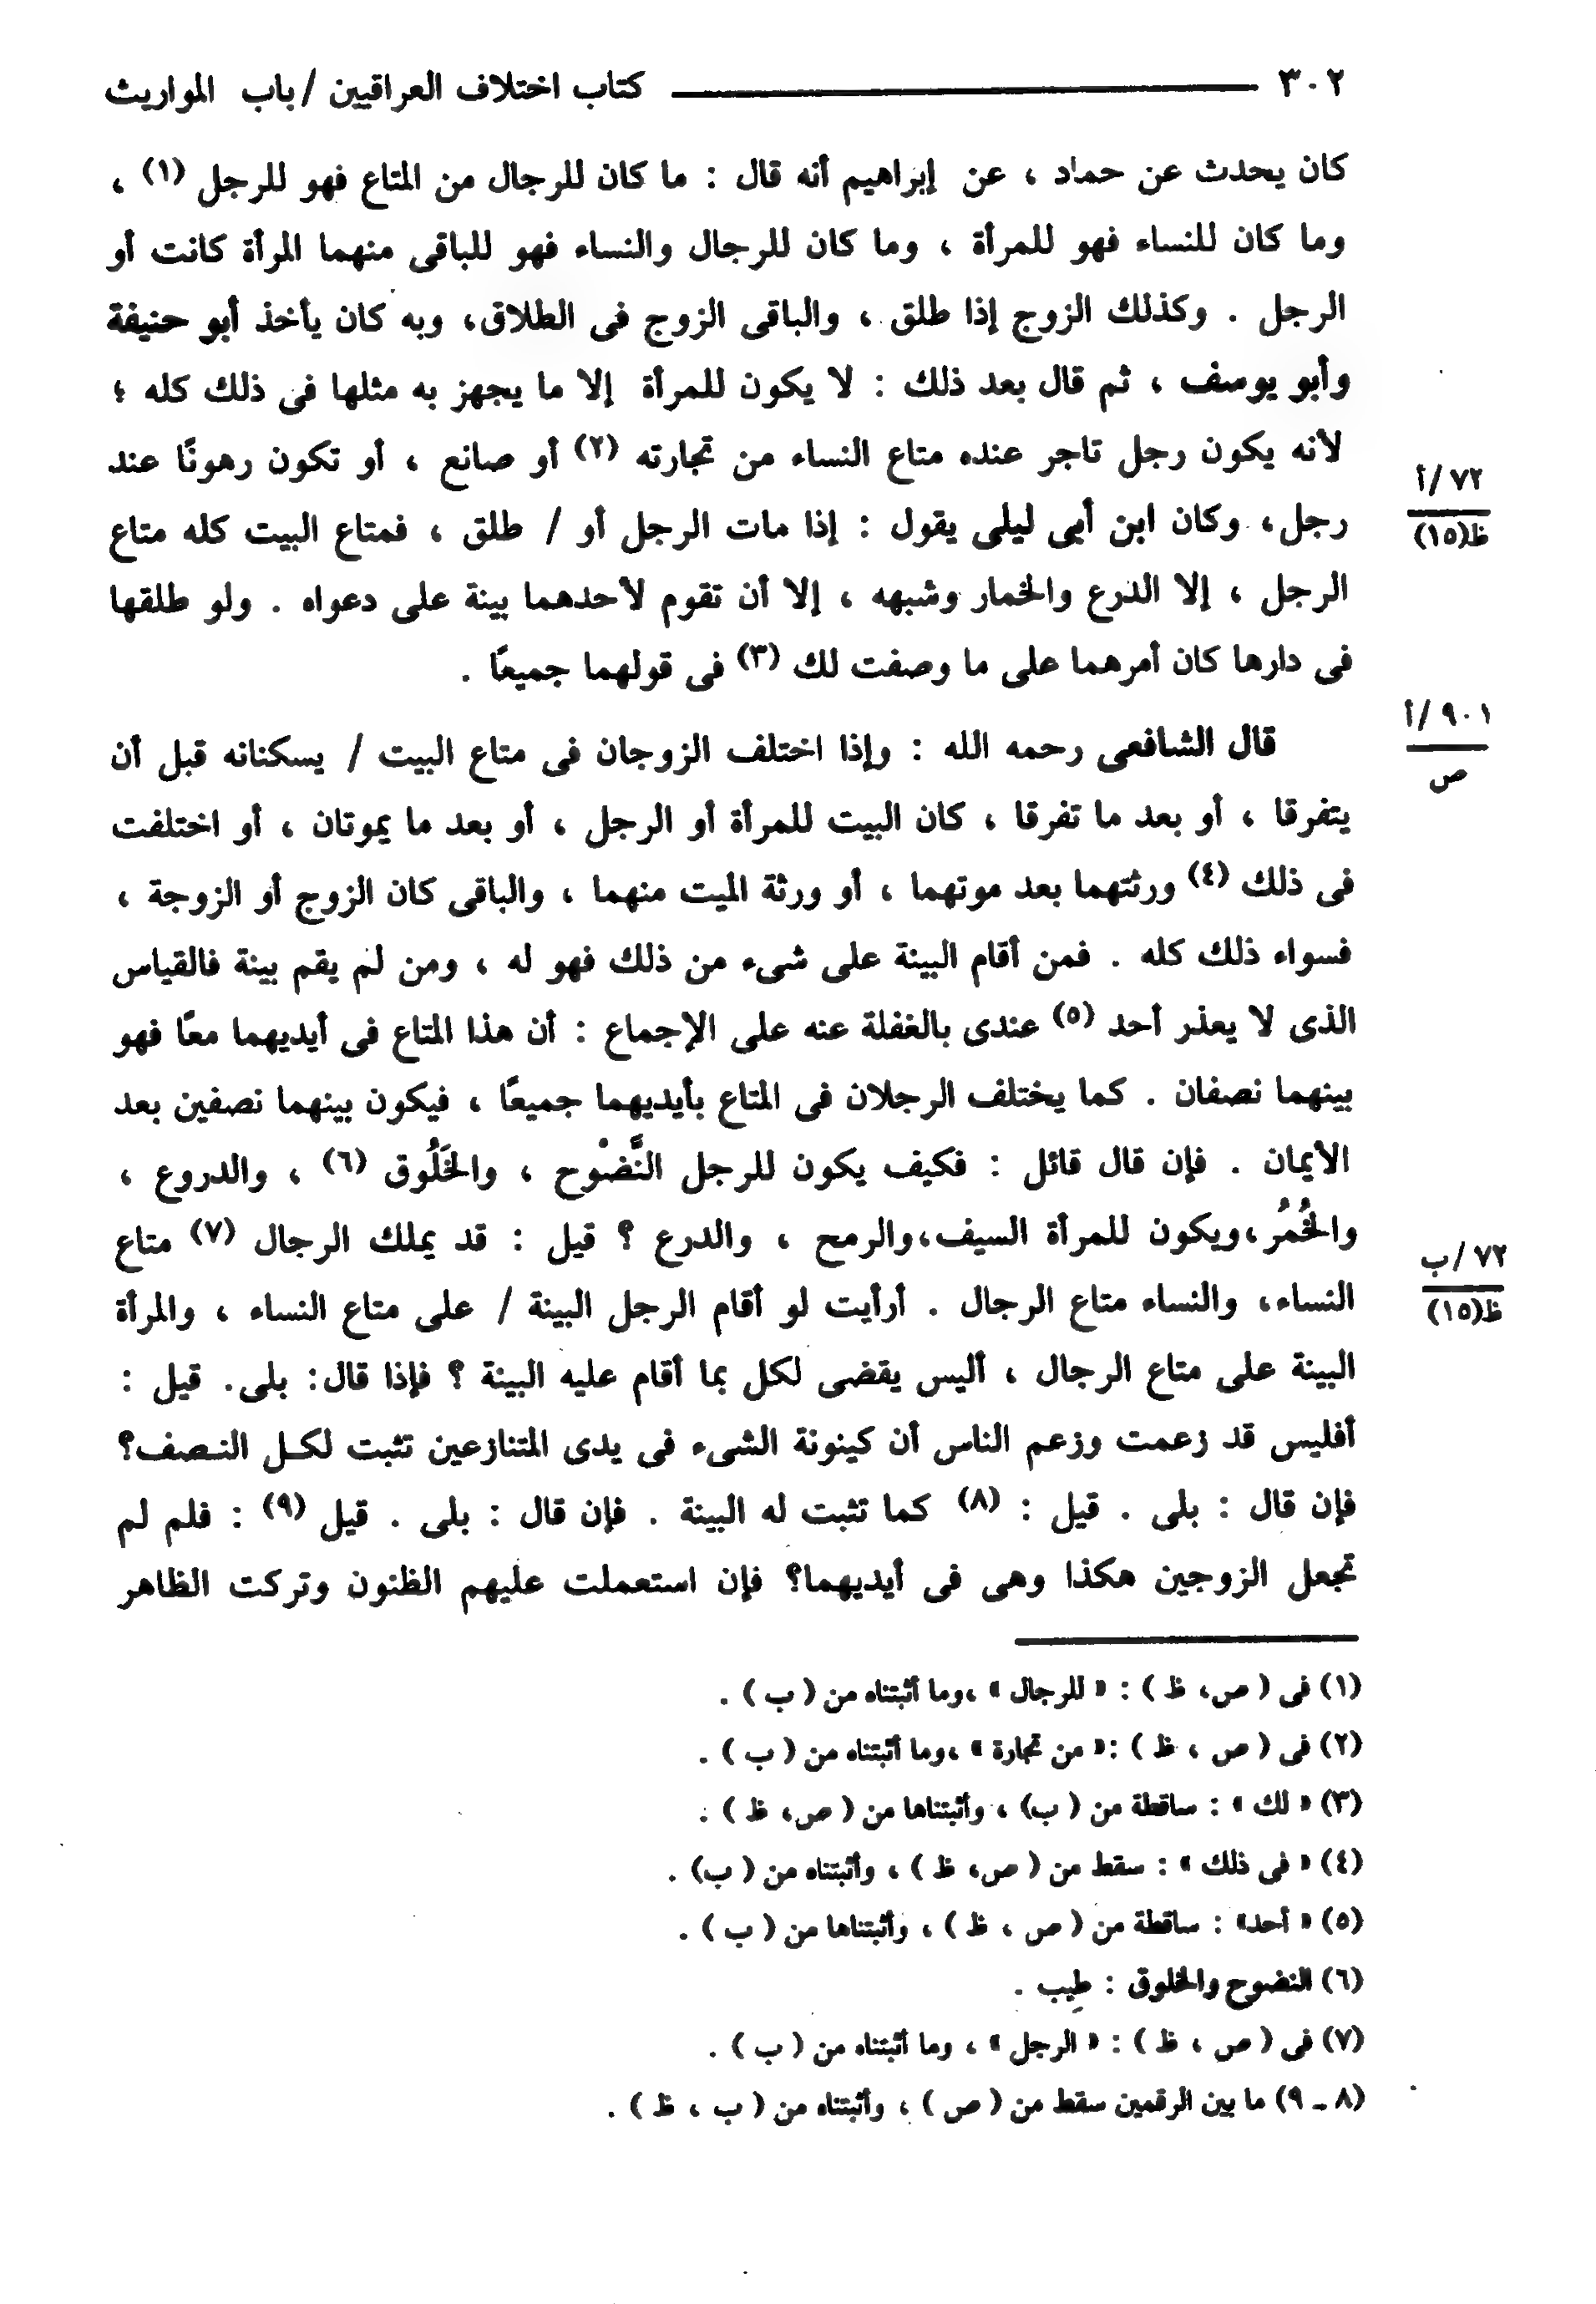 ٣٠٢ كتاب اختلاف العراقيين / باب المواريث
كان يحدث عن حماد ، عن إبراهيم أنه قال : ما كان للرجال من المتاع فهو للرجل (١) ،
وما كان للنساء فهو للمرأة ، وما كان للرجال والنساء فهو للباقى منهما المرأة كانت أو
الرجل . وكذلك الزوج إذا طلق ، والباقى الزوج فى الطلاق، وبه كان يأخذ أبو حنيفة
وأبو يوسف ، ثم قال بعد ذلك : لا يكون للمرأة إلا ما يجهز به مثلها فى ذلك كله ؛
لأنه يكون رجل تاجر عنده متاع النساء من تجارته (٢) أو صانع ، أو تكون رهونًا عند
رجل، وكان ابن أبى ليلى يقول : إذا مات الرجل أو / طلق ، فمتاع البيت كله متاع
٧٢ /أ
ظ(١٥)
الرجل ، إلا الدرع والخمار وشبهه ، إلا أن تقوم لأحدهما بينة على دعواه . ولو طلقها
فى دارها كان أمرهما على ما وصفت لك (٣) فى قولهما جميعًا .
قال الشافعى رحمه الله : وإذا اختلف الزوجان فى متاع البيت / يسكنانه قبل أن
٩٠١ /أ
ص
يتفرقا ، أو بعد ما تفرقا ، كان البيت للمرأة أو الرجل ، أو بعد ما يموتان ، أو اختلفت
فى ذلك (٤) ورثتهما بعد موتهما ، أو ورثة الميت منهما ، والباقى كان الزوج أو الزوجة ،
فسواء ذلك كله . فمن أقام البينة على شىء من ذلك فهو له ، ومن لم يقم بينة فالقياس
الذى لا يعذر أحد (٥) عندى بالغفلة عنه على الإجماع : أن هذا المتاع فى أيديهما معًا فهو
بينهما نصفان . كما يختلف الرجلان فى المتاع بأيديهما جميعًا ، فيكون بينهما نصفين بعد
الأيمان . فإن قال قائل : فكيف يكون للرجل النَّضُوْح ، والخَلُوق (٦) ، والدروع ،
والخُمُر،ويكون للمرأة السيف،والرمح ، والدرع ؟ قيل : قد يملك الرجال (٧) متاع
النساء، والنساء متاع الرجال . أرأيت لو أقام الرجل البينة / على متاع النساء ، والمرأة
٧٢ /ب
ظ(١٥)
البينة على متاع الرجال ، أليس يقضى لكل بما أقام عليه البينة ؟ فإذا قال: بلى. قيل :
أفليس قد زعمت وزعم الناس أن كينونة الشىء فى يدى المتنازعين تثبت لكـل النـصف؟
فإن قال : بلى . قيل : (٨) كما تثبت له البينة . فإن قال : بلى . قيل (٩) : فلم لم
تجعل الزوجين هكذا وهى فى أيديهما؟ فإن استعملت عليهم الظنون وتركت الظاهر
(١) فى ( ص، ظ ) : « للرجال » ،وما أثبتناه من ( ب ) .
(٢) فى ( ص ، ظ ) :« من تجارة » ،وما أثبتناه من ( ب ) .
(٣) « لك » : ساقطة من ( ب) ، وأثبتناها من ( ص، ظ ) .
(٤) « فى ذلك » : سقط من ( ص، ظ ) ، وأثبتناه من ( ب) .
(٥) « أحد» : ساقطة من ( ص ، ظ ) ، وأثبتناها من ( ب ) .
(٦) النضوح والخلوق : طِيب .
(٧) فى ( ص ، ظ ) : « الرجل » ، وما أثبتناه من ( ب ) .
(٨ ـ ٩) ما بين الرقمين سقط من ( ص ) ، وأثبتناه من ( ب ، ظ ) .